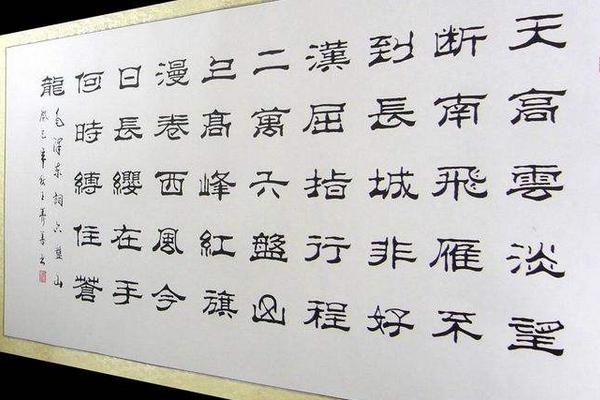 天高雲淡望
断南飛雁不
到長城非好
漢屈指行程
二萬六盤山
上髙峰紅旗
漫卷西風今
日長纓在手
何時縛住蒼
龍
毛澤東詞六盤山
癸巳年秋王